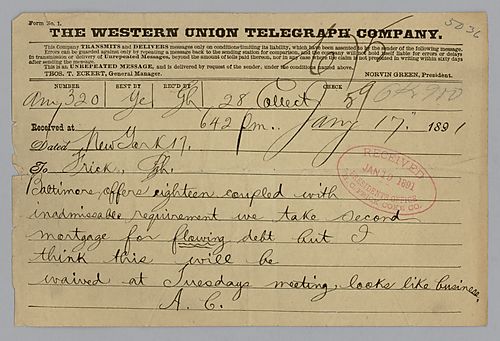 Form No. 1.
THE WESTERN UNION TELEGRAPH COMPANY.
This Company TRANSMITS and DELIVERS messages only on conditions limiting its liability, which have been assented to by the sender of the following message.
Errors can be guarded against only by repeating a message back to the sending station for comparison, and the company will not hold itself liable for errors or delays
in transmission or delivery of Unrepeated Messages, beyond the amount of tolls paid thereon, nor in any case where the claim is not presented in writing within sixty days
after sending the message.
This is an UNREPEATED MESSAGE, and is delivered by request of the sender, under the conditions named above.
THOS. T. ECKERT, General Manager. NORVIN GREEN, President.
NUMBER SENT BY REC'D BY CHECK
320 28 Collect
Received at 642 pm. Jany 17" 1891
Dated New York 17.
To Frick,
Baltimore, offers eighteen coupled with
inadmissable requirement we take second
mortgage for flowing debt but I
think this will be
waived at Tuesdays meeting, looks like business,
A. C.
RECEIVED
JAN 19 1891
PRESIDENT'S OFFICE
COKE CO.